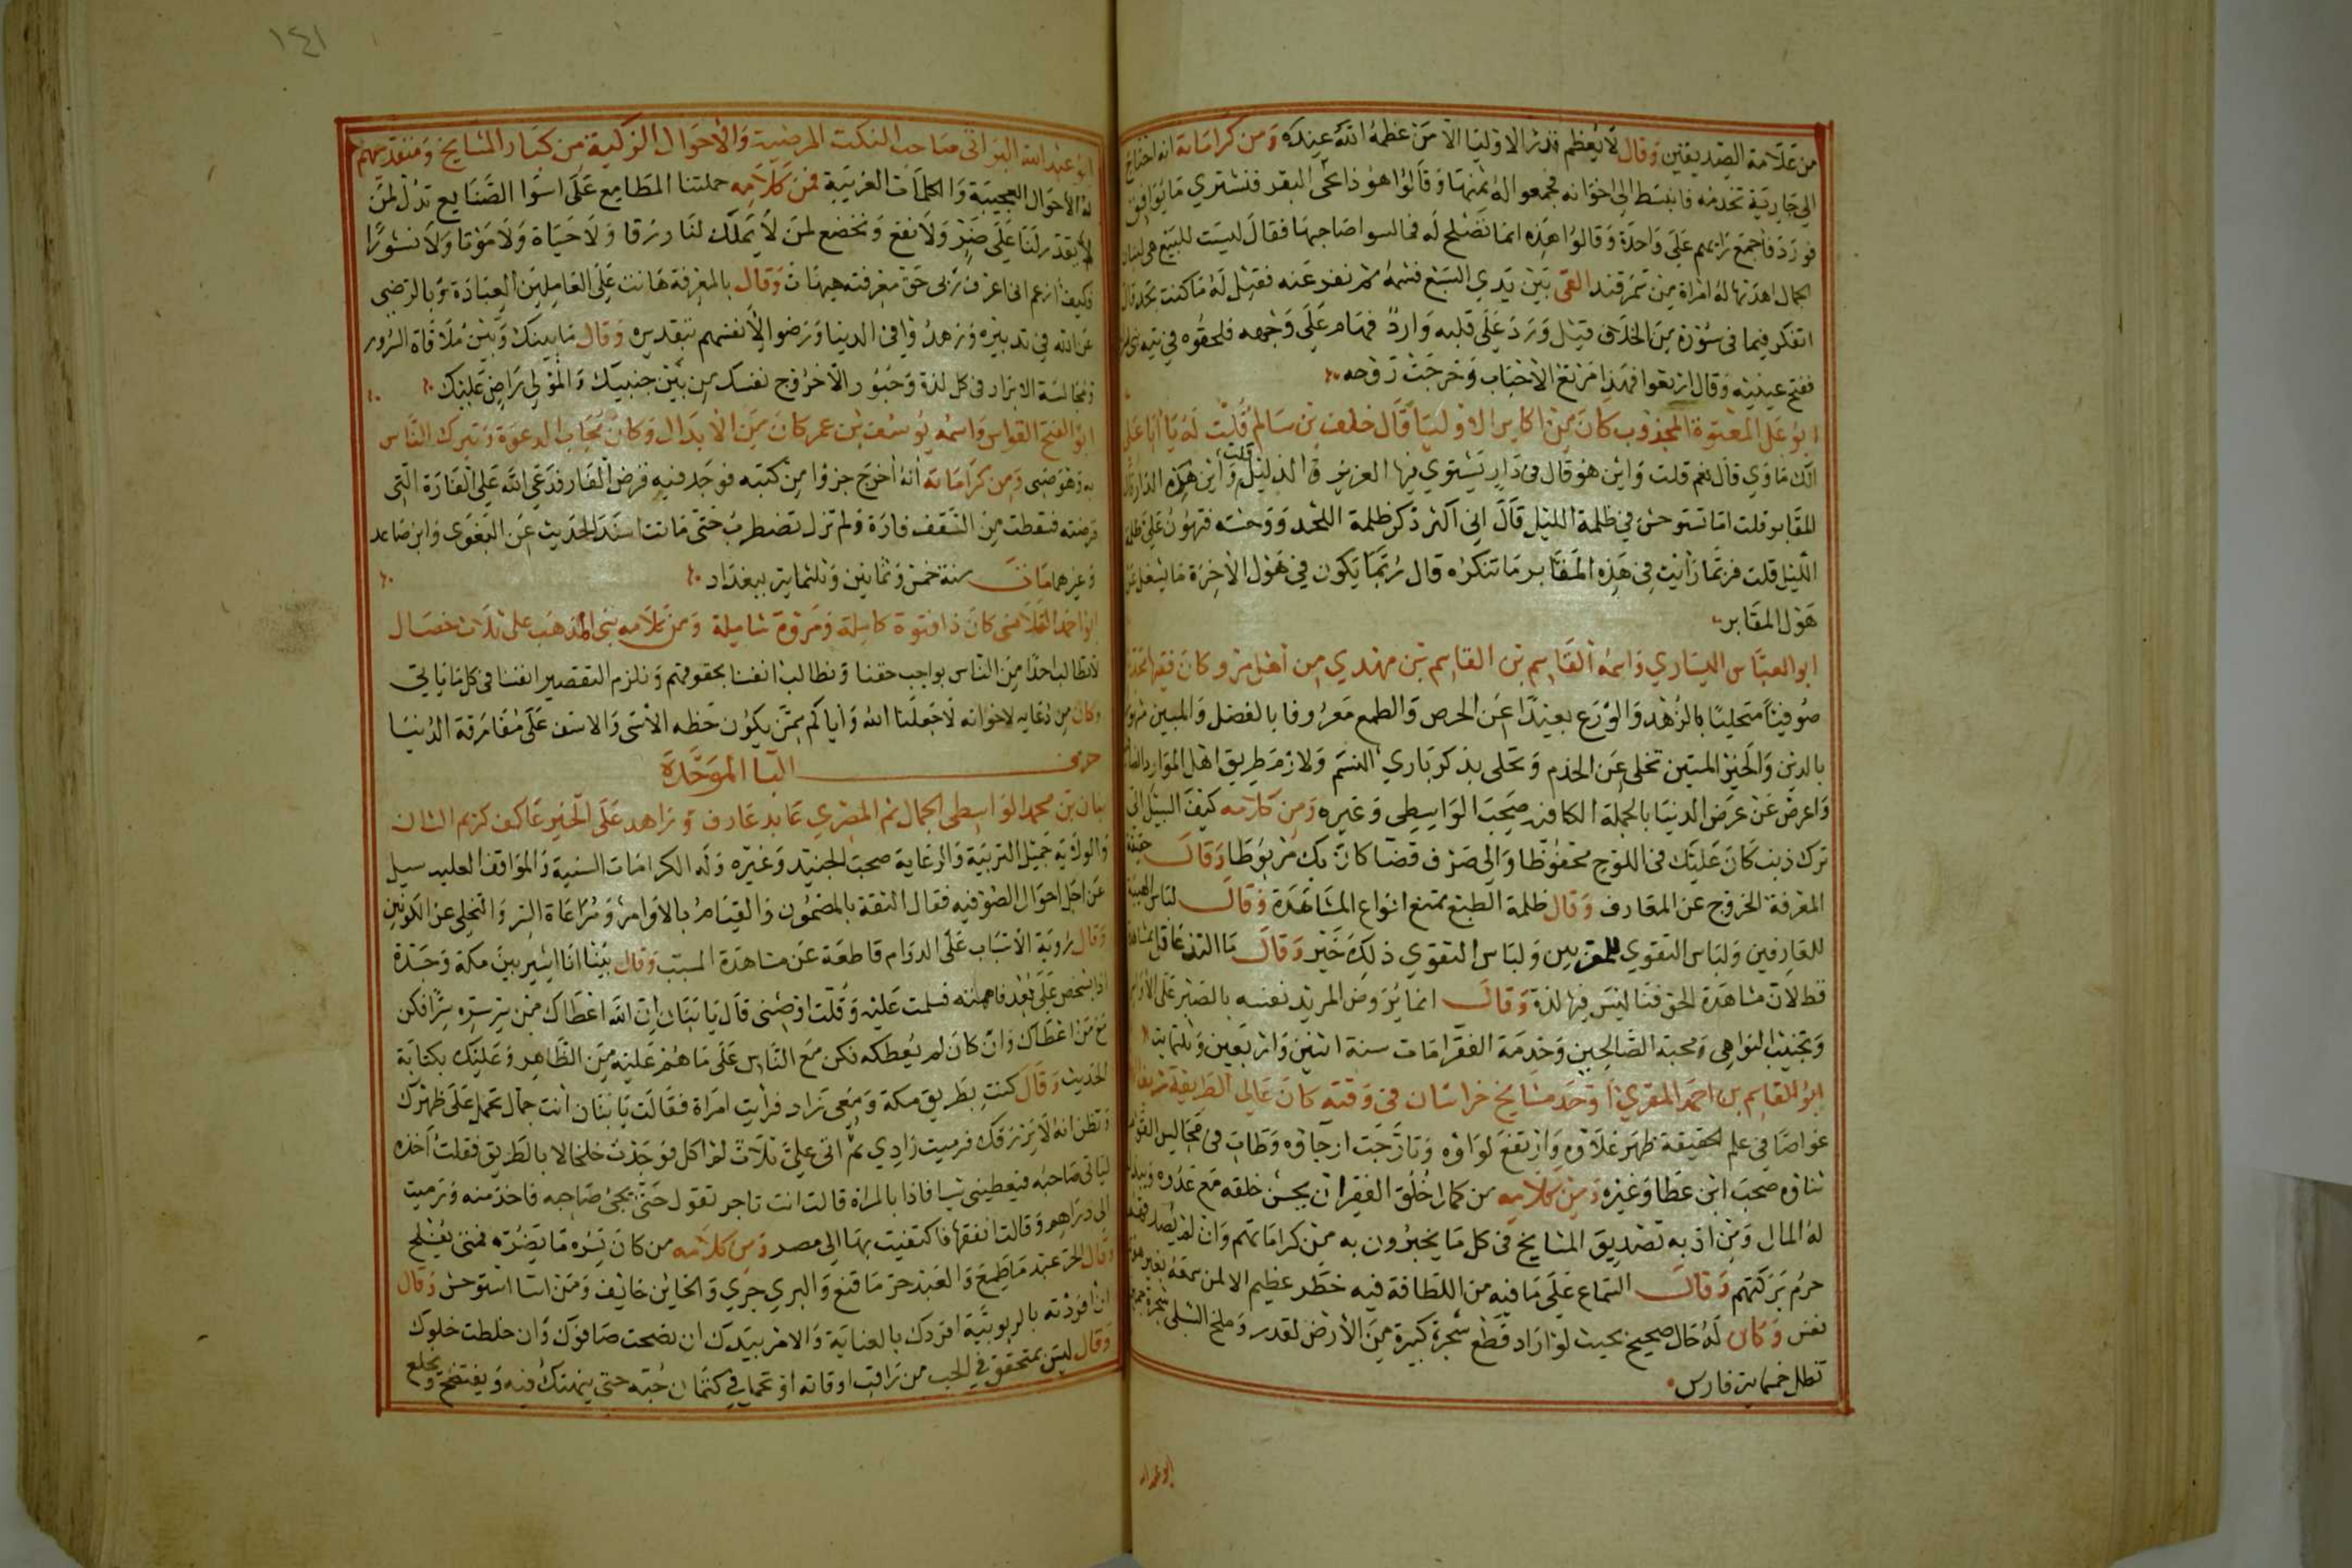 من علامة الصديقين وقال لا يعظم قدر الاوليا الا من عظمه الله عنده ومن كراماته انه احتاج
الى جارية تخدمه فانبسط الى اخوانه فجمعوا له ثمنها وقالوا هو ذا نجى البقر فنشتري ما يوافق
فورد فاجمع رايهم على واحدة وقالوا هذه انما تصلح له فمالسوا صاحبها فقال ليست للبيع هى لبنان
الجمال اهدتها له امراة من سمرقند القى بين يدي السبع فشمه ثم نفر عنه فقيل له ما كنت تجد قال
اتفكر فيما فى سؤره من الخلاف قيل ورد على قلبه وارد فهام على وجهه فلحقوه في تيه بنى
ففتح عينيه وقال ارتعوا فهذا مرتع الاحباب وخرجت روحه
ابو على المعتوه المجذوب كان من اكابر الاوليا قال خلف بن سالم قلت له يا ابا على
الك ماوي قال نعم قلت واين هو قال فى دار يستوي فيها العزيز والذليل قلت واين هذه الدار قال
المقابر قلت اما تستوحش في ظلمة الليل قال اني اكثر ذكر ظلمة اللحد ووحشته فتهون على ظلمة
الليل قلت فربما رايت فى هذه المقابر ما تنكره قال ربما يكون في هول الاخرة ما يشغل عن
هول المقابر
ابو العباس السياري واسمه القاسم بن القاسم بن مهدي من اهل مرو كان فقيها محدثا
صوفيا متحليا بالزهد والورع بعيدا عن الحرص والطمع معروفا بالفضل والمبين
بالدين والخير المتين تخلى عن الخدم وتحلى بذكر باري النسم ولازم طريق اهل الموارد
واعرض عن عرض الدنيا بالجملة الكافة صحب الواسطي وغيره ومن كلامه كيف السبيل الى
ترك ذنب كان عليك فى اللوح محفوظا والى صرف قضا كان بك مربوطا وقال حقيقة
المعرفة الخروج عن المعارف وقال ظلمة الطبع تمنع انواع المشاهدة وقال لباس الهيبة
للعارفين ولباس التقوي للمقربين ولباس التقوي ذلك خير وقال ما التذ عاقل بمشاهدة
قط لان مشاهدة الحق فنا ليس فيها لذة وقال انما يروض المريد نفسه بالصبر على الاوامر
وتجنب النواهى ومحبة الصالحين وخدمة الفقرا مات سنة اثنين واربعين وثلثماية
ابو القاسم بن احمد المقري اوحد مشايخ خراسان فى وقته كان عالى الطريقة شريف
غواصا فى علم الحقيقة ظهر علاؤه وارتفع لواؤه وتارجت ارجاؤه وطاب فى مجالس القوم
ثناؤه صحب ابن عطا وغيره ومن كلامه من كمال خلق الفقير ان يحسن خلقه مع عدوه ويبذل
له المال ومن ادبه تصديق المشايخ فى كل ما يخبرون به من كراماتهم وان لم يصدقهم
حرم بركتهم وقال السماع على ما فيه من اللطافة فيه خطر عظيم الا لمن سمعه بغير
نفس وكان له حال صحيح بحيث لو اراد قطع شجرة كبيرة من الارض لقدر وملح الشبلى
تظل خمساية فارس
ابو عبد الله
١٤١
ابو عبد الله البراثى صاحب النكت المرضية والاحوال الزكية من كبار المشايخ ومتقدميهم
له الاحوال العجيبة والكلمات الغريبة فمن كلامه حملتنا المطامع على اسوا الصنايع تذل لمن
لا يقدر لنا على ضر ولا نفع ونخضع لمن لا يملك لنا رزقا ولا حياة ولا موتا ولا نشورا
فكيف ازعم انى اعرف ربى حق معرفته هيهات وقال بالمعرفة هانت على العاملين العبادة وبالرضى
عن الله في تدبيره وزهدوا فى الدنيا ورضوا لانفسهم بتقديره وقال ما بينك وبين ملاقاة السرور
ومجالسة الابرار فى كل لذة وحبور الا خروج نفسك من بين جنبيك والمولى راض عليك
ابو الفتح القواس واسمه يوسف بن عمر كان من الابدال وكان مجاب الدعوة وتبرك الناس
به وهو صبى ومن كراماته انه اخرج جزوا من كتبه فوجد فيه قرض الفار فدعى الله على الفارة التى
قرضته فسقطت من السقف فارة ولم تزل تضطرب حتى ماتت اسند الحديث عن البغوى وابن صاعد
وغيرهما مات سنة خمس وثمانين وثلثماية ببغداد
ابو احمد القلانسى كان ذا فتوة كاملة ومروة شاملة ومن كلامه بنى المذهب على ثلاث خصال
لا نطالب احدا من الناس بواجب حقنا ونطالب انفسنا بحقوقهم ونلزم التقصير انفسنا فى كل ما ياتى
وكان من دعايه لاخوانه لا جعلنا الله واياكم ممن يكون حظه الاسى والاسف على مفارقة الدنيا
حرف البا الموحدة
بنان بن محمد الواسطى الجمال ثم المصري عابد عارف وزاهد على الخير عاكف كريم الشان
والولايه جميل التربية والرعاية صحب الجنيد وغيره وله الكرامات السنية والمواقف العلية سيل
عن اجل احوال الصوفيه فقال الثقة بالمضمون والقيام بالاوامر ومراعاة السر والتخلى عن الكونين
وقال روية الاسباب على الدوام قاطعة عن مشاهدة المسبب وقال بينا انا اسير بين مكة وجدة
اذا بشخص على بعد فاممته فسلمت عليه وقلت اوصنى قال يا بنان ان الله اعطاك من سر سره سرا فكن
مع من اعطاك وان كان لم يعطكه فكن مع الناس على ما هم عليه من الظاهر وعليك بكتابة
الحديث وقال كنت بطريق مكة ومعى زاد فرايت امراة فقالت يا بنان انت جمال تحمل على ظهرك
وتظن انه لا يرزقك فرميت زادي ثم اتى على ثلاث لم اكل فوجدت خلخالا بالطريق فقلت اخذه
لياتى صاحبه فيعطينى شيا فاذا بالمراة قالت انت تاجر تقول حتى يجى صاحبه فاخذ منه ورميت
الى دراهم وقالت انفقها فاكتفيت بها الى مصر ومن كلامه من كان يسره ما يضره فمتى يفلح
وقال الحر عبد ما طمع والعبد حر ما قنع والبري جري والخاين خايف ومن اسا استوحش وقال
ان افردته بالربوبية افردك بالعناية والامر بيدك ان نصحت صافوك وان خلطت خلوك
وقال ليس بمتحقق في الحب من راقب اوقاته او تحمل في كتمان حبه حتى ينهتك فيه ويفتضح ويخلع